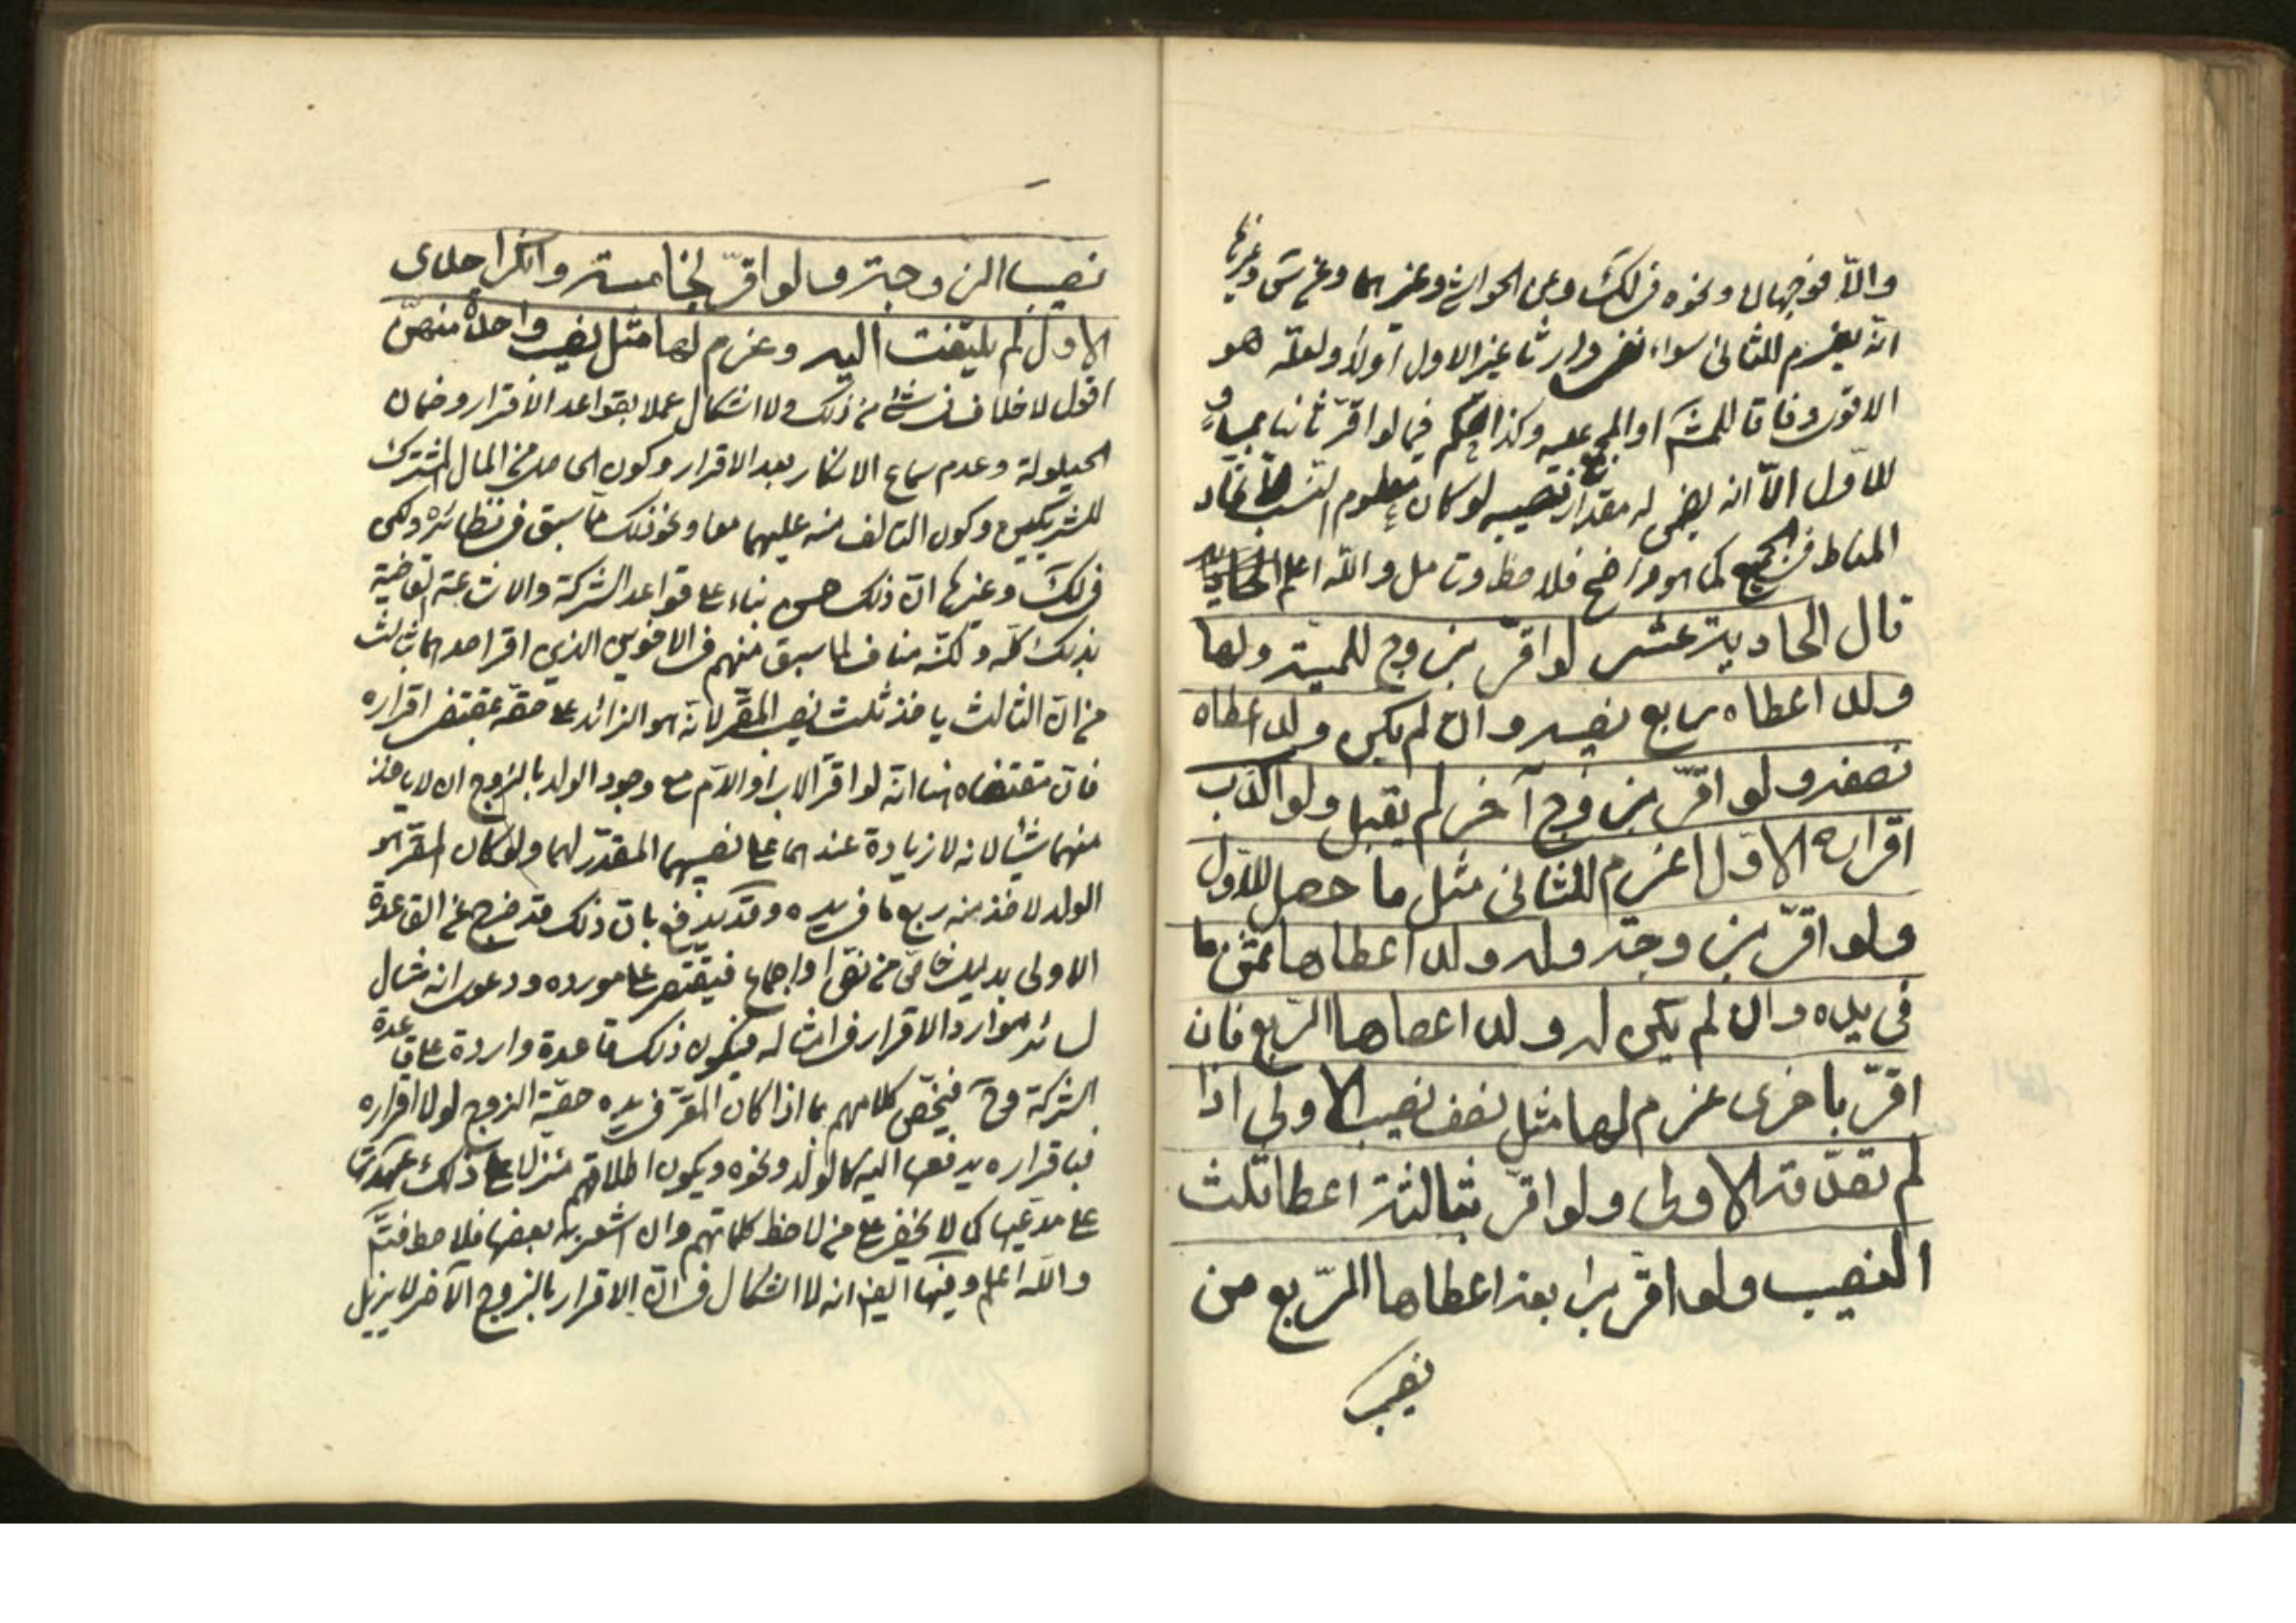 والّا فوجهان ونحوه في لك وعن الحواشي وغيرهما وعن س وغيرها
انه يغرم للثاني سواء نفى وارثا غير الاول اولا ولعلّه هو
الاقوى وفاقا للمشهور او المجمع عليه وكذا الحكم فيما لو اقرّ ثانيا بمساو
للاوّل الّا انه يضمن له مقدار نصيبه لو كان معلوم النسب لاتحاد
المناط في الجميع كما هو واضح فلاحظ وتامل والله اعلم
قال الحادية عشر لو اقرّ بزوج للميتة ولها
ولد اعطاه ربع نصيبه وان لم يكن ولد اعطاه
نصفه ولو اقرّ بزوج آخر لم يقبل ولو اكذب
اقراره الاوّل اغرم للثاني مثل ما حصل للاول
ولو اقرّ بزوجة وله ولد اعطاها ثمن ما
في يده وان لم يكن له ولد اعطاها الرّبع فان
اقرّ باخرى غرم لها مثل نصف نصيب الاولى اذا
لم تصدّقه الاولى ولو اقرّ بثالثة اعطا ثلث
النصيب ولو اقرّ برابعة اعطاها الرّبع من
نصيب
نصيب الزوجة ولو اقرّ بخامسة وانكر احدى
الاول لم يلتفت اليه وغرم لها مثل نصيب واحدة منهنّ
اقول لا خلاف في شئ من ذلك ولا اشكال عملا بقواعد الاقرار وضمان
الحيلولة وعدم سماع الانكار بعد الاقرار وكون الحاصل من المال المشترك
للشريكين وكون التالف منه عليهما معا ونحو ذلك مما سبق في نظائره ولكن
في لك وغيرها انّ ذلك بناء على قواعد الشركة والاشاعة القاضية
بذلك كلّه ولكنّه مناف لما سبق منهم في الاخوين الذين اقر احدهما بثالث
من ان الثالث ياخذ ثلث نصيب المقرّ لانه هو الزائد على حقّه بمقتضى اقراره
فانّ مقتضاه هنا انه لو اقرّ الاب او الام مع وجود الولد بالزوج ان لا ياخذ
منهما شيئا لانه لا زيادة عندهما على نصيبهما المقدّر لهما ولو كان المقرّ هو
الولد لاخذ منه ربع ما في يده وقد يدفع بان ذلك قد خرج عن القاعدة
الاولى بدليل خاص من نصّ او اجماع فيقتصر على مورده ودعوى انه مثال
لسائر موارد الاقرار في امثاله فيكون ذلك قاعدة واردة على قاعدة
الشركة وح فيختصّ كلامهم بما اذا كان المقرّ في يده حصّة الزوج لولا اقراره
فباقراره يدفعها اليه كالولد ونحوه ويكون اطلاقهم منزلا على ذلك
على مدّعيها كما لا يخفى على من لاحظ كلماتهم وان اشعر به بعضها فلاحظ
والله اعلم وفيها ايضا انه لا اشكال في انّ الاقرار بالزوج الآخر لا يزيل